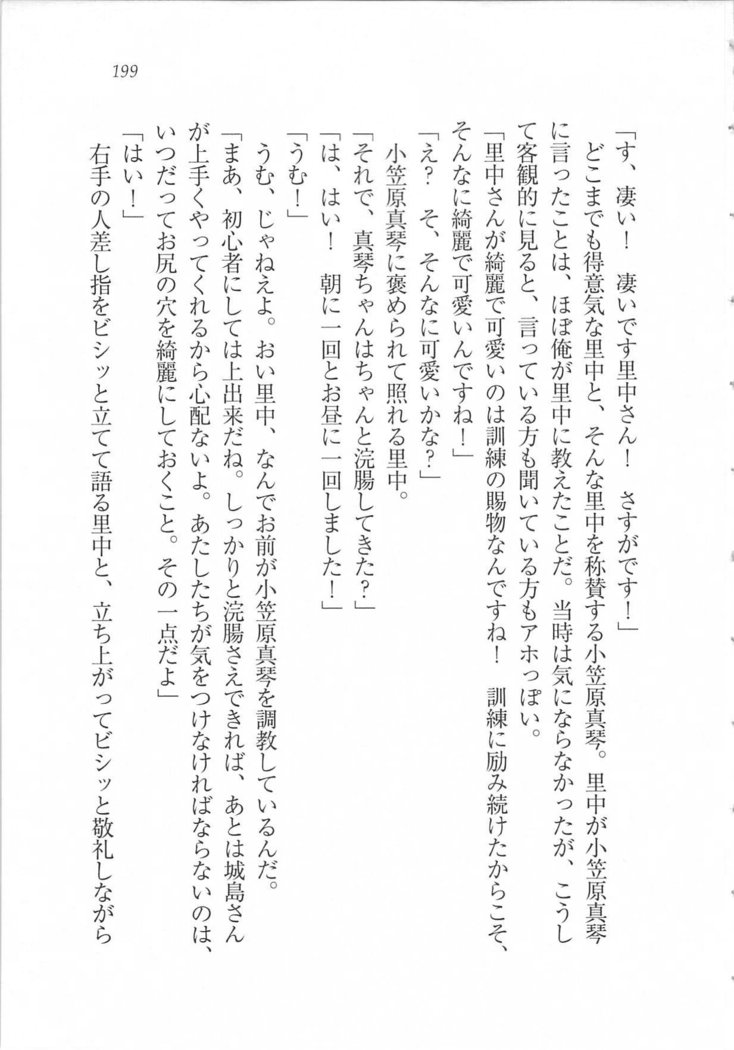 199
「す、凄い！　凄いです里中さん！　さすがです！」
　どこまでも得意気な里中と、そんな里中を称賛する小笠原真琴。里中が小笠原真琴
に言ったことは、ほぼ俺が里中に教えたことだ。当時は気にならなかったが、こうし
て客観的に見ると、言っている方も聞いている方もアホっぽい。
「里中さんが綺麗で可愛いのは訓練の賜物なんですね！　訓練に励み続けたからこそ、
そんなに綺麗で可愛いんですね！」
「え？　そ、そんなに可愛いかな？」
　小笠原真琴に褒められて照れる里中。
「それで、真琴ちゃんはちゃんと浣腸してきた？」
「は、はい！　朝に一回とお昼に一回しました！」
「うむ！」
　うむ、じゃねえよ。おい里中、なんでお前が小笠原真琴を調教しているんだ。
「まあ、初心者にしては上出来だね。しっかりと浣腸さえできれば、あとは城島さん
が上手くやってくれるから心配ないよ。あたしたちが気をつけなければならないのは、
いつだってお尻の穴を綺麗にしておくこと。その一点だよ」
「はい！」
　右手の人差し指をビシッと立てて語る里中と、立ち上がってビシッと敬礼しながら